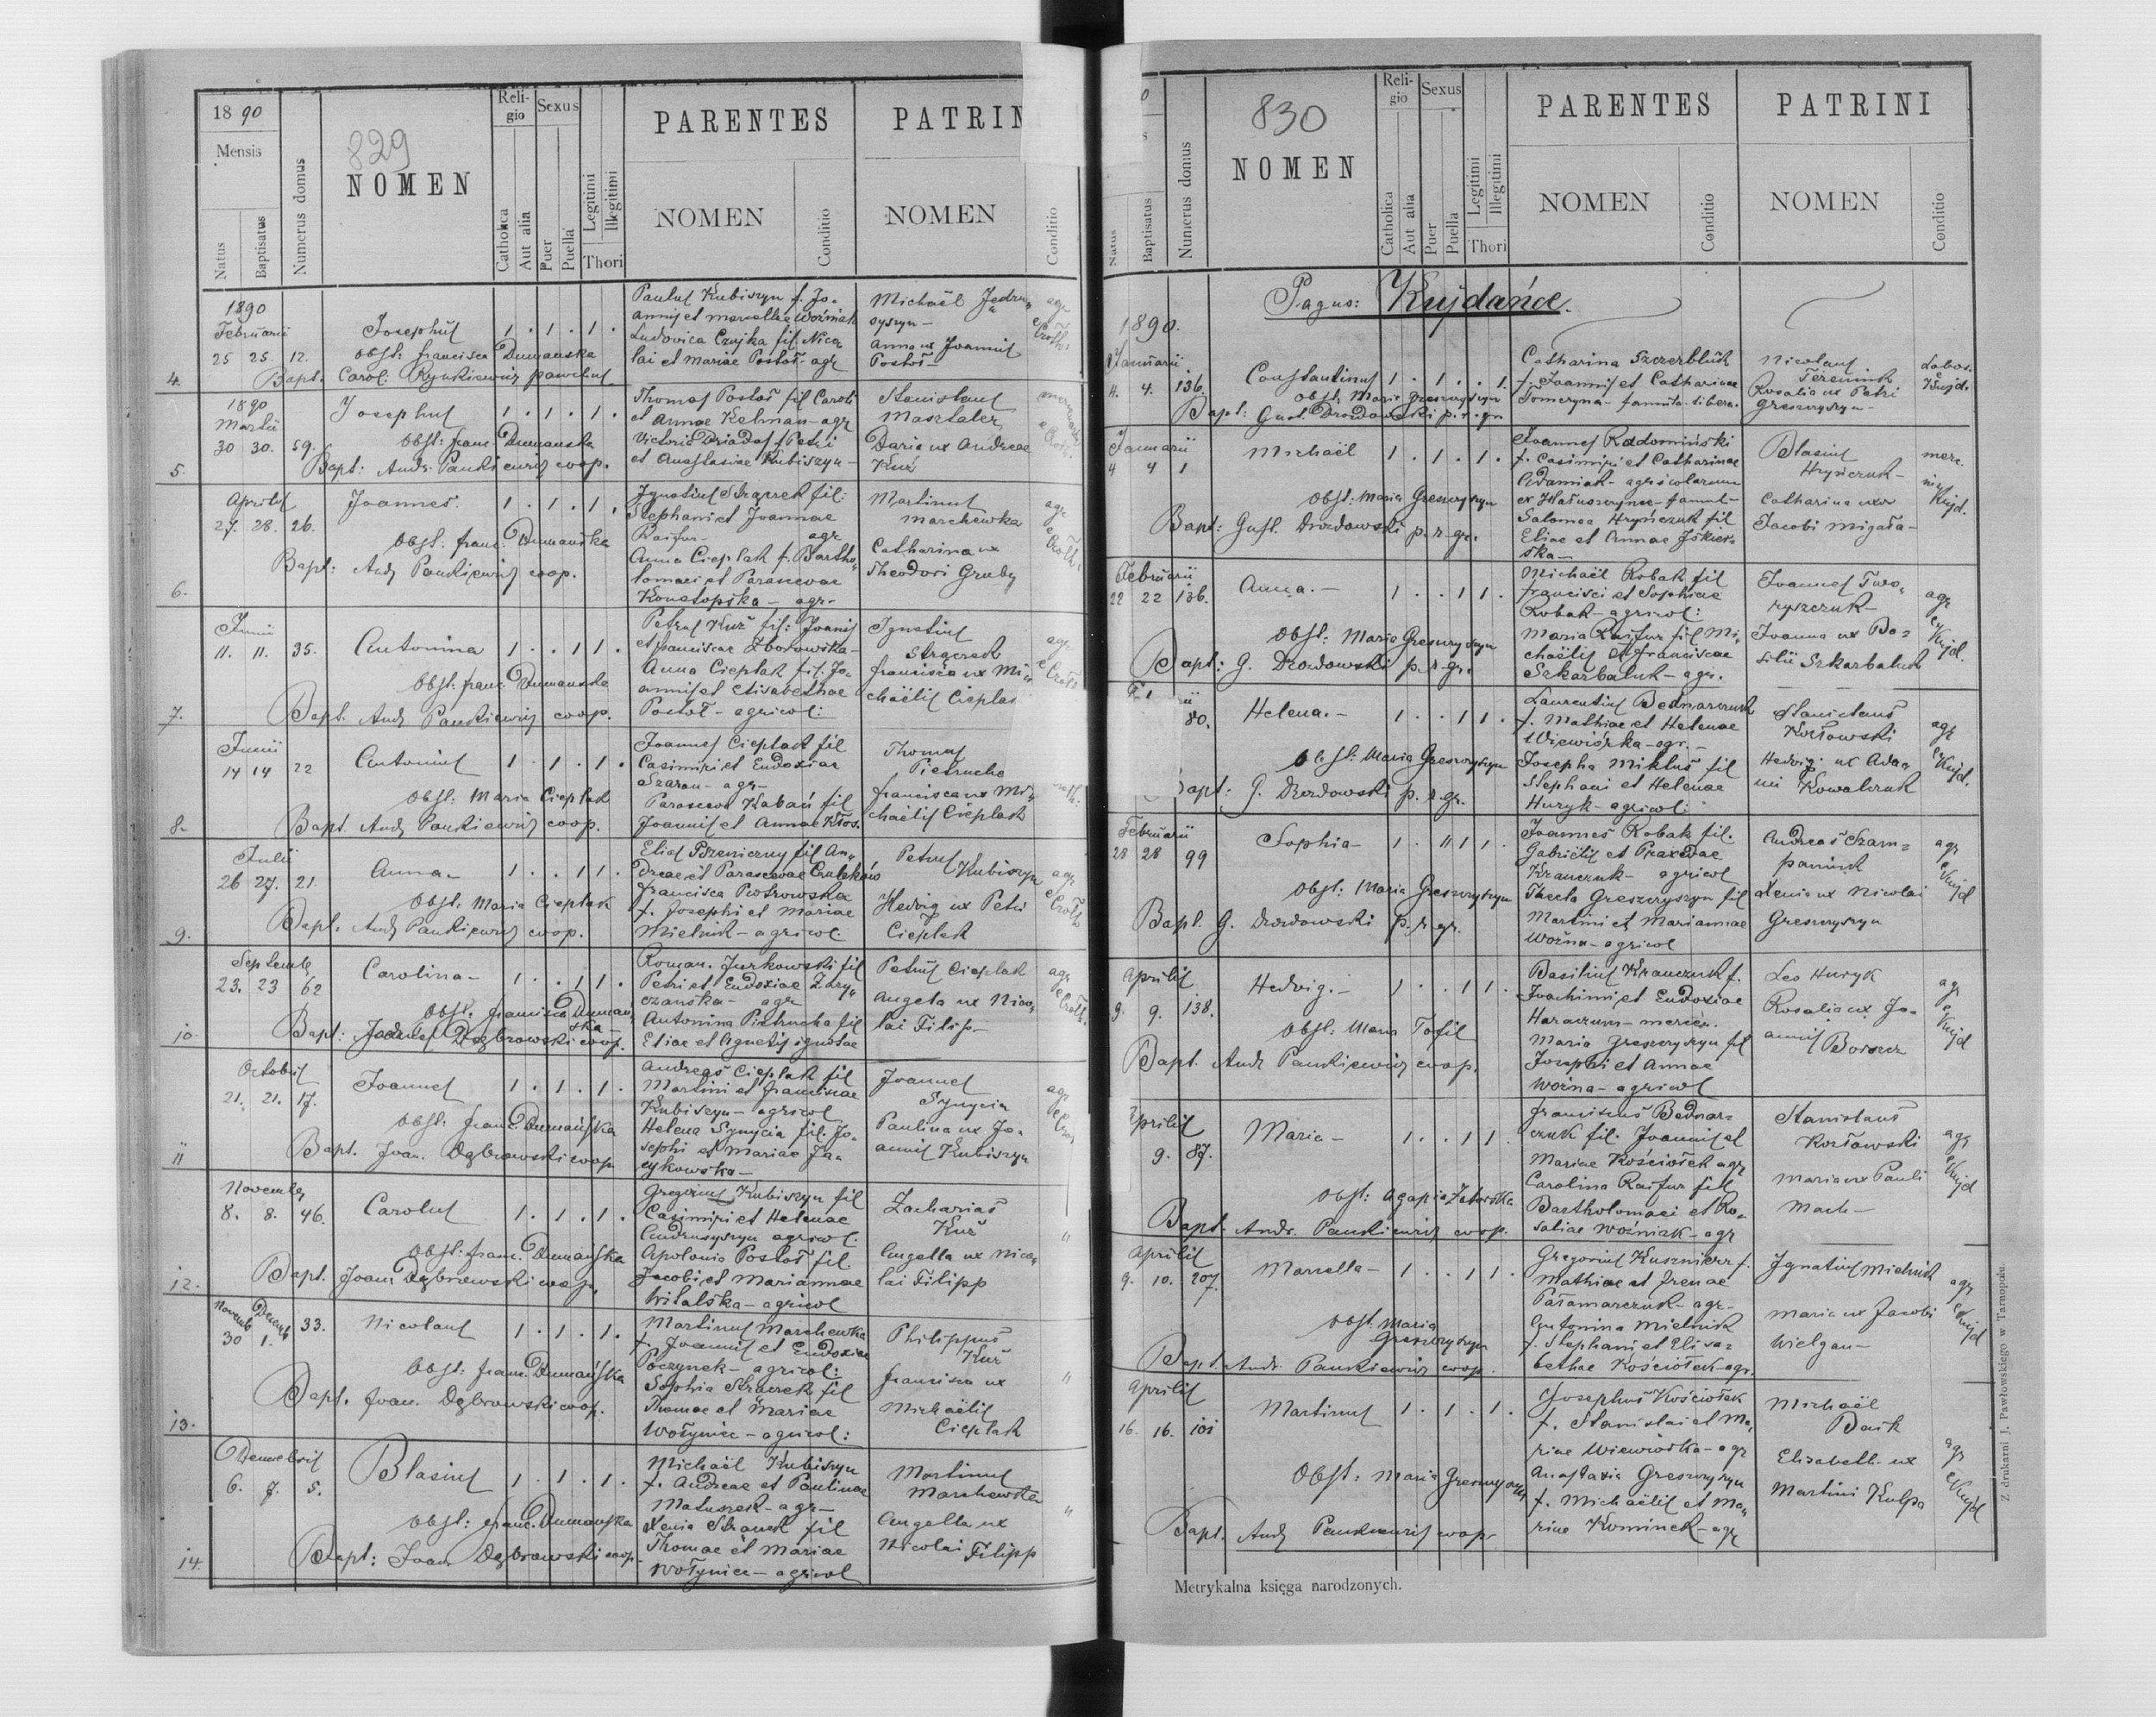 1890
829
Mensis
Natus
Baptisatus
Numerus domus
NOMEN
Religio
Catholica
Aut alia
Sexus
Puer
Puella
Legitimi
Illegitimi
Thori
PARENTES
NOMEN
Conditio
PATRIN
NOMEN
Conditio
4.
1890
Februarii
25 25. 12.
Josephus
Obst: Francisca Dumanska
Bapt. Carol:
1 . 1 . 1 .
Paulus Kubiszyn f. Jo-
annis et Marcellae Woźniak
Ludovica Czajka fil. Nico-
lai et Mariae Postoł - agr
Michaël
Anna ux Joannis
Postoł -
5.
1890
Martii
30 30. 59.
Josephus
Obst: Franc: Dumanska
Bapt: Andr. Pankiewicz coop.
1 . 1 . 1 .
Thomas Postoł fil Caroli
et Annae Kelman - agr
et Anastasiae Kubiszyn -
Stanislaus
Masztaler
Daria ux Andreae
Kuź
6.
Aprilis
27. 28. 26.
Joannes.
Obst. Franc. Dumańska
Bapt: Andr Pankiewicz coop.
1 . 1 . 1 .
Ignatius fil:
Stephani et Joannae
Raifur - agr
Anna Cieplak f. Bartho-
lomaei et Parascevae
Konotopska - agr -
Martinus
Marchewka
Catharina ux
Theodori Gruby
7.
Junii
11. 11. 35.
Antonina
Obst. Franc. Dumanska
Bapt. Andr Pankiewicz coop.
1 . . 1 1 .
Petrus Kuź fil: Joannis
et Franciscae Zborowska -
Anna Cieplak fil. Jo-
annis et Elisabethae
Postoł - agricol:
Ignatius
Francisca ux Mi-
chaëlis Cieplak
8.
Junii
14 14 22
Antonius
Obst: Maria Cieplak
Bapt. Andr Pankiewicz coop.
1 . 1 . 1 .
Joannes Cieplak fil
Casimiri et Eudoxiae
Szaran - agr -
Parasceva Kabań fil
Joannis et Annae Kłos.
Thomas
Pietrucha
Francisca ux Mi-
chaëlis Cieplak
9.
Julii
26 27. 21.
Anna -
Obst. Maria Cieplak
Bapt. Andr Pankiewicz coop.
1 . . 1 1 .
Elias Pszeniczny fil An-
dreae et Parascevae
Francisca Piotrowska
f. Josephi et Mariae
Mielnik - agricol
Petrus Kubiszyn
Hedvig ux Petri
Cieplak
10.
Septemb
23. 23 62
Carolina -
Obst. Francisca Duman-
ska -
Bapt: Joannes Dąbrowski coop.
1 . . 1 1 .
Roman. Jurkowski fil
Petri et Eudoxiae
czańska - agr
Antonina Pietrucha fil
Eliae et Agnetis ignotae
Petrus Cieplak
Angela ux Nico-
lai Filip -
11
Octobris
21. 21. 17.
Joannes
Obst: Franc. Dumańska
Bapt. Joan. Dąbrowski coop
1 . 1 . 1 .
Andreas Cieplak fil
Martini et Franciscae
Kubiszyn - agricol
Helena Synycia fil. Jo-
sephi et Mariae Ja-
cykowska -
Joannes
Synycia
Paulina ux Jo-
annis Kubiszyn
12.
Novemb
8. 8. 46.
Carolus
Obst: Franc. Dumańska
Bapt. Joan Dąbrowski coop.
1 . 1 . 1 .
Gregorius Kubiszyn fil
Casimiri et Helenae
Andruszyszyn agricol.
Apolonia Postoł fil
Jacobi et Mariannae
Witalska - agricol
Zacharias
Kuź
Angella ux Nico-
lai Filipp
13.
Novemb Decemb
30 1. 33.
Nicolaus
Obst: Franc. Dumańska
Bapt. Joan. Dąbrowski coop.
1 . 1 . 1 .
Martinus Marchewka
f. Joannis et Eudoxiae
Poczynek - agricol:
Sophia fil
Thomae et Mariae
Wołyniec - agricol:
Philippus
Kuź
Francisca ux
Michaëlis
Cieplak
14.
Decembris
6. 7. 5.
Blasius
Obst: Franc. Dumańska
Bapt: Joan Dąbrowski coop.
1 . 1 . 1 .
Michaël Kubiszyn
f. Andreae et Paulinae
Matuszek - agr -
Xenia fil
Thomae et Mariae
Wołyniec - agricol
Martinus
Marchewka
Angella ux
Nicolai Filipp
830
Baptisatus
Numerus domus
NOMEN
Religio
Catholica
Aut alia
Sexus
Puer
Puella
Legitimi
Illegitimi
Thori
PARENTES
NOMEN
Conditio
PATRINI
NOMEN
Conditio
Pagus: Kujdańce.
1890.
Januarii
4. 4. 136.
Constantinus
Obst. Maria Greszczyszyn
Bapt: Gust. Drozdowski p. r. gr
1 . 1 . . 1.
Catharina Szczerbluk
f. Joannis et Catharinae
Tomeryna - famula libera.
Nicolaus
Rosalia ux Petri
Greszczyszyn -
Januarii
4 4 1
Michaël
Obst: Maria Greszczyszyn
Bapt: Gust. Drozdowski p. r. gr.
1 . 1 . 1 .
Joannes Radomiński
f. Casimiri et Catharinae
Adamiak - agricolarum
Salomea Hryńczuk fil
Eliae et Annae
Blasius
Hryńczuk -
Catharina uxor
Jacobi Migała -
Februarii
22 22 136.
Anna. -
Obst: Maria Greszczyszyn
Bapt: G. Drozdowski p. r. gr.
1 . . 1 1 .
Michaël Robak fil
Francisci et Sophiae
Robak - agricol:
Maria Raifur fil Mi-
chaëlis et Franciscae
Szkarbaluk - agr.
Joannes Two-
ryszczuk -
Joanna ux Ba-
silii Szkarbaluk
80.
Helena. -
Obst: Maria Greszczyszyn
G. Drozdowski p. r. gr.
1 . . 1 1 .
Laurentius Bednarczuk
f. Mathiae et Helenae
Wiewiórka - agr. -
Josepha Mikluś fil
Stephani et Helenae
Huryk - agricol:
Stanislaus
Kozłowski
Hedvig: ux Ada-
mi Kowalczuk
Februarii
28 28 99
Sophia -
Obst: Maria Greszczyszyn
Bapt. G. Drozdowski p. r. gr.
1 . " 1 1 .
Joannes Robak fil.
Gabriëlis et Praxedae
Krawczuk - agricol
Thecla Greszczyszyn fil
Martini et Mariannae
Woźna - agricol
Andreas Szam-
paniuk
Xenia ux Nicolai
Greszczyszyn
Aprilis
9. 9. 138.
Hedvig. -
Obst: Maria Tofil
Bapt. Andr Pankiewicz coop.
1 . . 1 1 .
Basilius Krawczuk f.
Joachimi et Eudoxiae
Maria Greszczyszyn fil
Josephi et Annae
Woźna - agricol
Leo Huryk
Rosalia ux Jo-
annis Borszcz
Aprilis
9. 87.
Maria -
Obst: Agapia
Bapt. Andr. Pankiewicz coop.
1 . . 1 1 .
Franciscus Bednar-
czuk fil. Joannis et
Mariae Kościołek agr
Carolina Raifur fil
Bartholomaei et Ro-
saliae Woźniak - agr
Stanislaus
Kozłowski
Maria ux Pauli
Mach -
Aprilis
9. 10. 207.
Marcella -
Obst. Maria
Greszczyszyn
Bapt. Andr. Pankiewicz coop.
1 . . 1 1 .
Gregorius Kusznierz f.
Mathiae et Irenae
Pałamarczuk - agr -
Antonina Mielnik
f. Stephani et Elisa-
bethae Kościołek - agr.
Ignatius Mielnik
Maria ux Jacobi
Wielgan -
Aprilis
16. 16. 101
Martinus
Obst: Maria Greszczyszyn
Bapt. Andr Pankiewicz coop -
1 . 1 . 1 .
Josephus Kościołek
f. Stanislai et Ma-
riae Wiewiórka - agr
Anastasia Greszczyszyn
f. Michaëlis et Ma-
riae Kominek - agr
Michaël
Elisabeth. ux
Martini Kulpa
Metrykalna księga narodzonych.
Z drukarni J. Pawłowskiego w Tarnopolu.